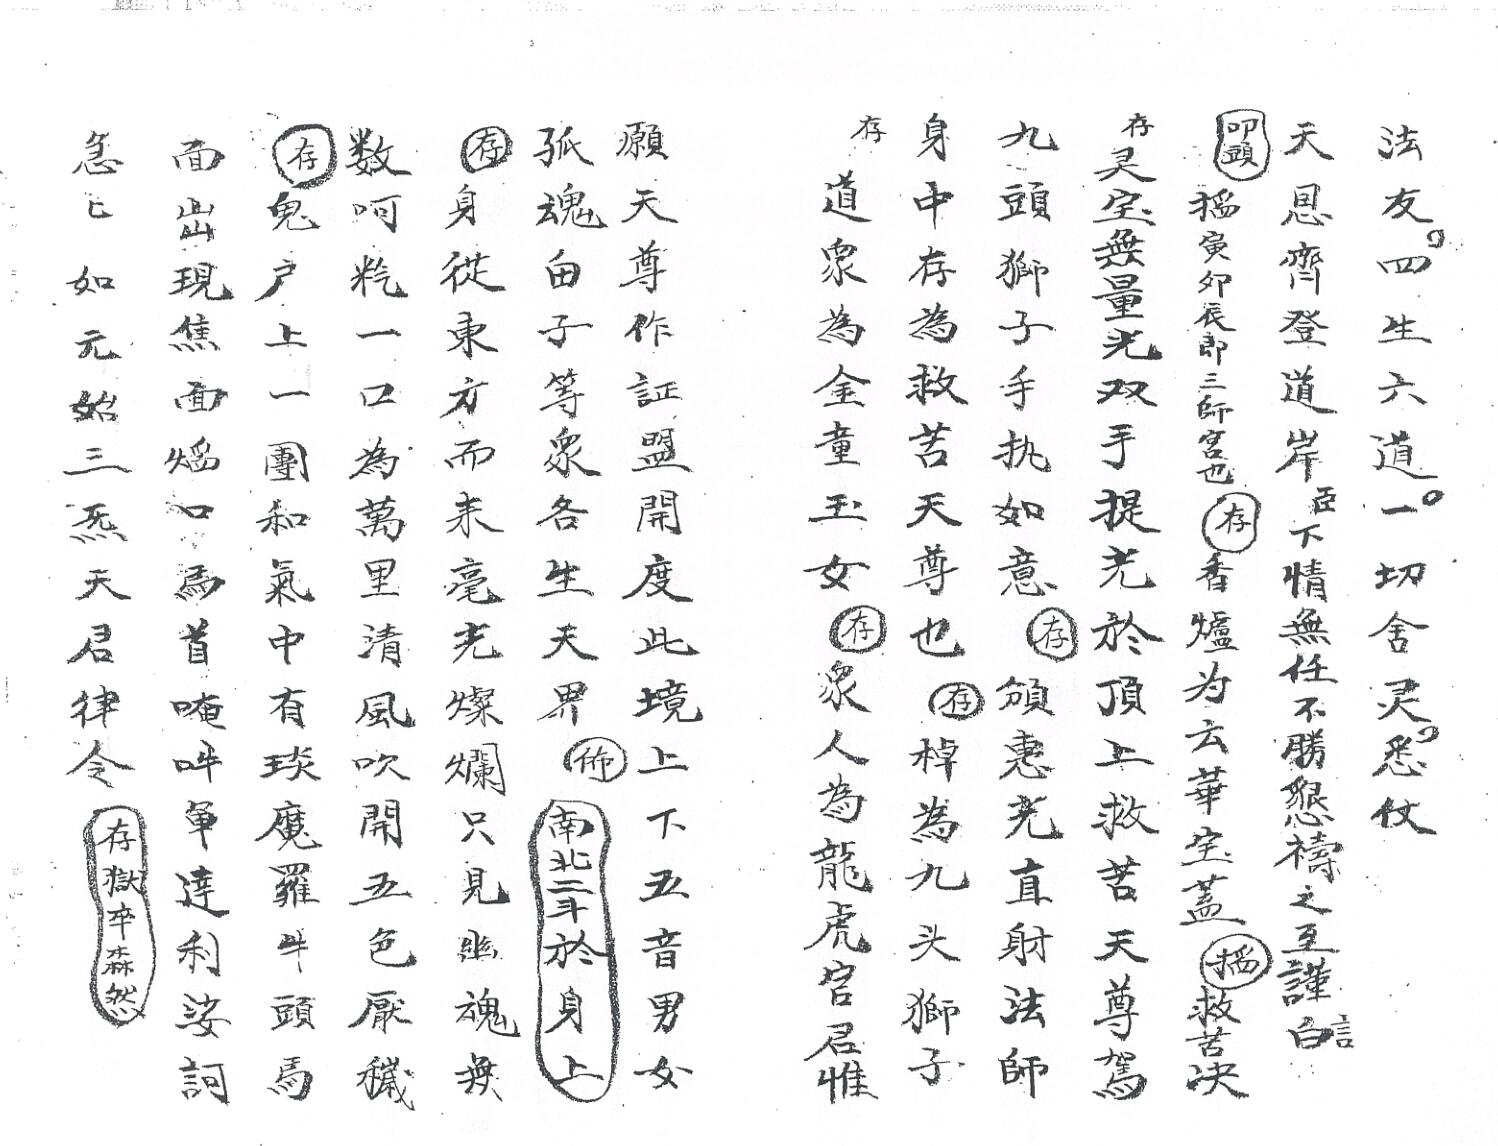 法友四生六道一切含灵悉仗
天恩齊登道岸臣下情無任不勝懇禱之至謹言白
叩頭 搯寅夘辰即三師宮也 存 香爐为云華宝蓋 搯 救苦决
存 灵宝無量光双手提光於頂上救苦天尊駕
九頭獅子手执如意 存 頒惠光直射法師
身中存為救苦天尊也 存 棹為九头獅子
存 道衆為金童玉女 存 衆人為龍虎官君惟
願天尊作証盟開度此境上下五音男女
孤魂由子等衆各生天界 佈 南北二斗於身上
存 身從東方而来毫光燦爛只見幽魂無
数呵粃一口為萬里清風吹開五色厭穢
存 鬼户上一團和氣中有琰魔羅牛頭馬
面出現焦面焰口為首唵吽 達利娑訶
急匕如元始三炁天君律令 存獄卒森然